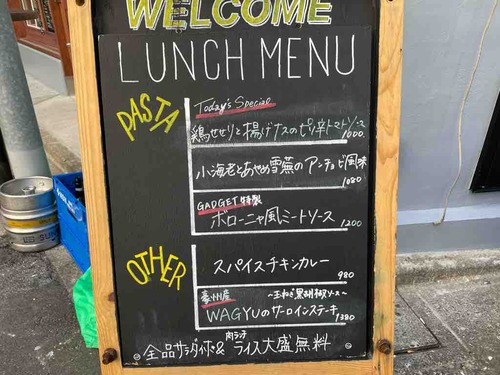 WELCOME
LUNCH MENU
PASTA
Today's Special
鶏せせりと揚げナスのピリ辛トマトソース
1000
小海老とあやめ雪蕪のアンチョビ風味
1080
GADGET特製
ボローニャ風ミートソース
1200
OTHER
スパイスチキンカレー
980
豪州産 〜玉ねぎ黒胡椒ソース〜
WAGYUのサーロインステーキ
1380
肉ランチ
全品サラダバイキング& ライス大盛無料